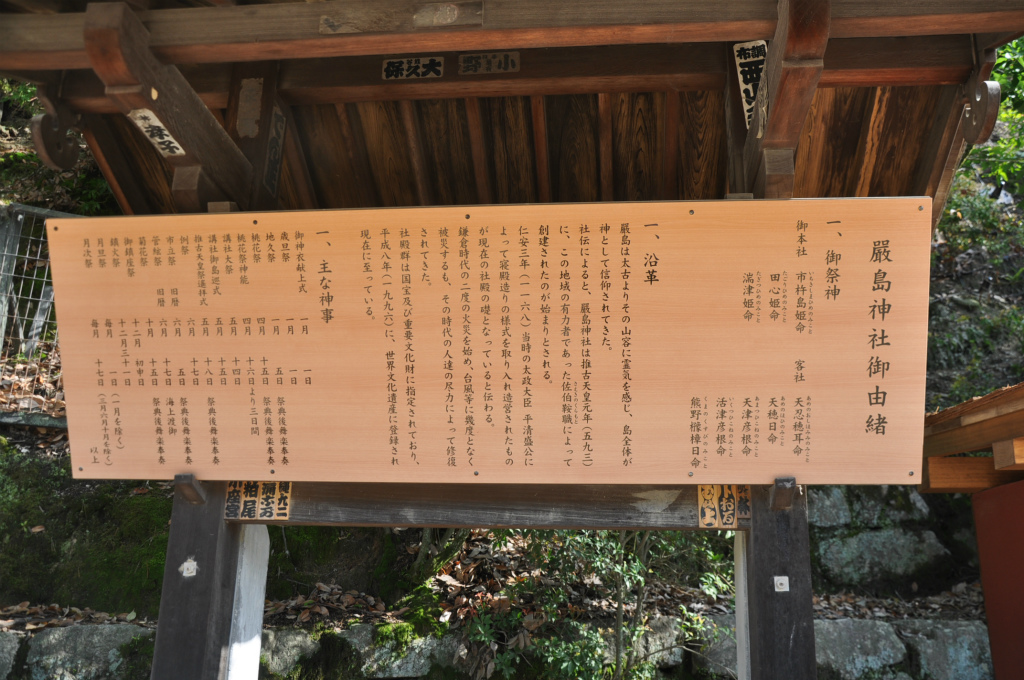 嚴島神社御由緒
一、御祭神
御本社 市杵島姫命
田心姫命
湍津姫命
客社 天忍穂耳命
天穂日命
天津彦根命
活津彦根命
熊野櫲樟日命
一、沿革
嚴島は太古よりその山容に霊気を感じ、島全体が
神として信仰されてきた。
社伝によると、嚴島神社は推古天皇元年(五九三)
に、この地域の有力者であった佐伯鞍職によって
創建されたのが始まりとされる。
仁安三年(一一六八)当時の太政大臣 平清盛公に
よって寝殿造りの様式を取り入れ造営されたもの
が現在の社殿の礎となっていると伝わる。
鎌倉時代の二度の火災を始め、台風等に幾度となく
被災するも、その時代の人達の尽力によって修復
されてきた。
社殿群は国宝及び重要文化財に指定されており、
平成八年(一九九六)に、世界文化遺産に登録され
現在に至っている。
一、主な神事
御神衣献上式 一月 一日
歳旦祭 一月 一日
地久祭 一月 五日 祭典後舞楽奉奏
桃花祭 四月 十五日 祭典後舞楽奉奏
桃花祭神能 四月 十六日より三日間
講社大祭 五月 十四日
講社御島巡式 五月 十五日
推古天皇祭遥拝式 五月 十八日 祭典後舞楽奉奏
例祭 六月 十七日 祭典後舞楽奉奏
市立祭 旧暦 六月 五日 祭典後舞楽奉奏
管絃祭 旧暦 六月 十七日 海上渡御
菊花祭 十月 十五日 祭典後舞楽奉奏
御鎮座祭 十二月 初申日
鎮火祭 十二月 三十一日
月旦祭 毎月 一日 (一月を除く)
月次祭 毎月 十七日 (三月六月十月を除く)
以上
大久保
小野
柏尾